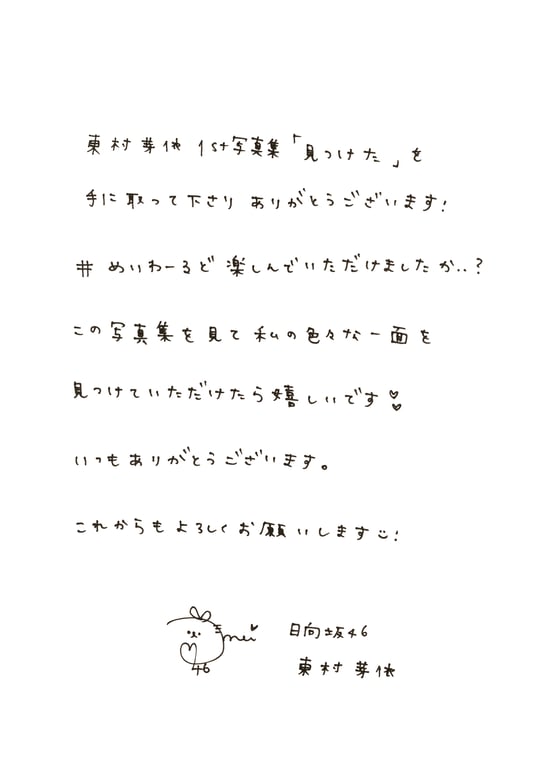 東村芽依 1st写真集「見つけた」を
手に取って下さり ありがとうございます!
# めいわーるど 楽しんでいただけましたか..?
この写真集を見て私の色々な一面を
見つけていただけたら嬉しいです♡♡
いつもありがとうございます。
これからもよろしくお願いします☺!
mei♡
46
日向坂46
東村芽依